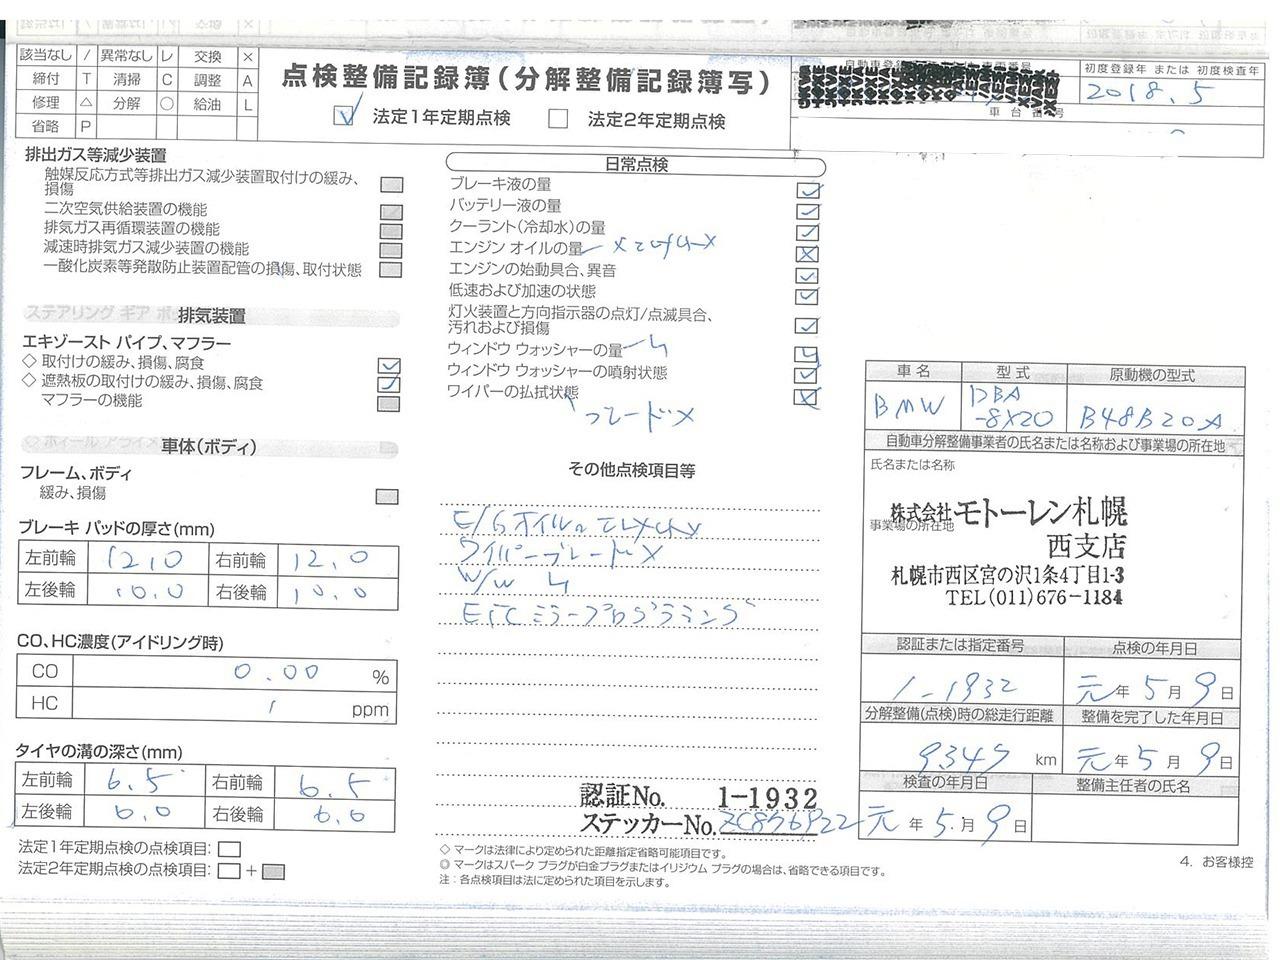 該当なし / 異常なし レ 交換 ×
締付 T 清掃 C 調整 A
修理 △ 分解 ○ 給油 L
省略 P
点検整備記録簿(分解整備記録簿写)
法定1年定期点検 法定2年定期点検
初度登録年 または 初度検査年
2018.5
車台番号
排出ガス等減少装置
触媒反応方式等排出ガス減少装置取付けの緩み、
損傷
二次空気供給装置の機能
排気ガス再循環装置の機能
減速時排気ガス減少装置の機能
一酸化炭素等発散防止装置配管の損傷、取付状態
ステアリング ギア
排気装置
エキゾースト パイプ、マフラー
◇ 取付けの緩み、損傷、腐食
◇ 遮熱板の取付けの緩み、損傷、腐食
マフラーの機能
車体(ボディ)
フレーム、ボディ
緩み、損傷
ブレーキ パッドの厚さ(mm)
左前輪 12.0 右前輪 12.0
左後輪 10.0 右後輪 10.0
CO、HC濃度(アイドリング時)
CO 0.00 %
HC 1 ppm
タイヤの溝の深さ(mm)
左前輪 6.5 右前輪 6.5
左後輪 6.0 右後輪 6.0
法定1年定期点検の点検項目:
法定2年定期点検の点検項目: +
日常点検
ブレーキ液の量
バッテリー液の量
クーラント(冷却水)の量
エンジン オイルの量
エンジンの始動具合、異音
低速および加速の状態
灯火装置と方向指示器の点灯/点滅具合、
汚れおよび損傷
ウィンドウ ウォッシャーの量 L
ウィンドウ ウォッシャーの噴射状態
ワイパーの払拭状態
ブレード×
その他点検項目等
E/Gオイル
ワイパーブレード×
W/W L
ETCミラープログラミング
認証No. 1-1932
ステッカーNo.
◇ マークは法律により定められた距離指定省略可能項目です。
◎ マークはスパーク プラグが白金プラグまたはイリジウム プラグの場合は、省略できる項目です。
注：各点検項目は法に定められた項目を示します。
車名 型式 原動機の型式
BMW DBA B48B20A
-8X20
自動車分解整備事業者の氏名または名称および事業場の所在地
氏名または名称
株式会社モトーレン札幌
事業場の所在地
西支店
札幌市西区宮の沢1条4丁目1-3
TEL(011)676-1184
認証または指定番号 点検の年月日
1-1932 元年5月9日
分解整備(点検)時の総走行距離 整備を完了した年月日
km 元年5月9日
検査の年月日 整備主任者の氏名
元年5月9日
4. お客様控